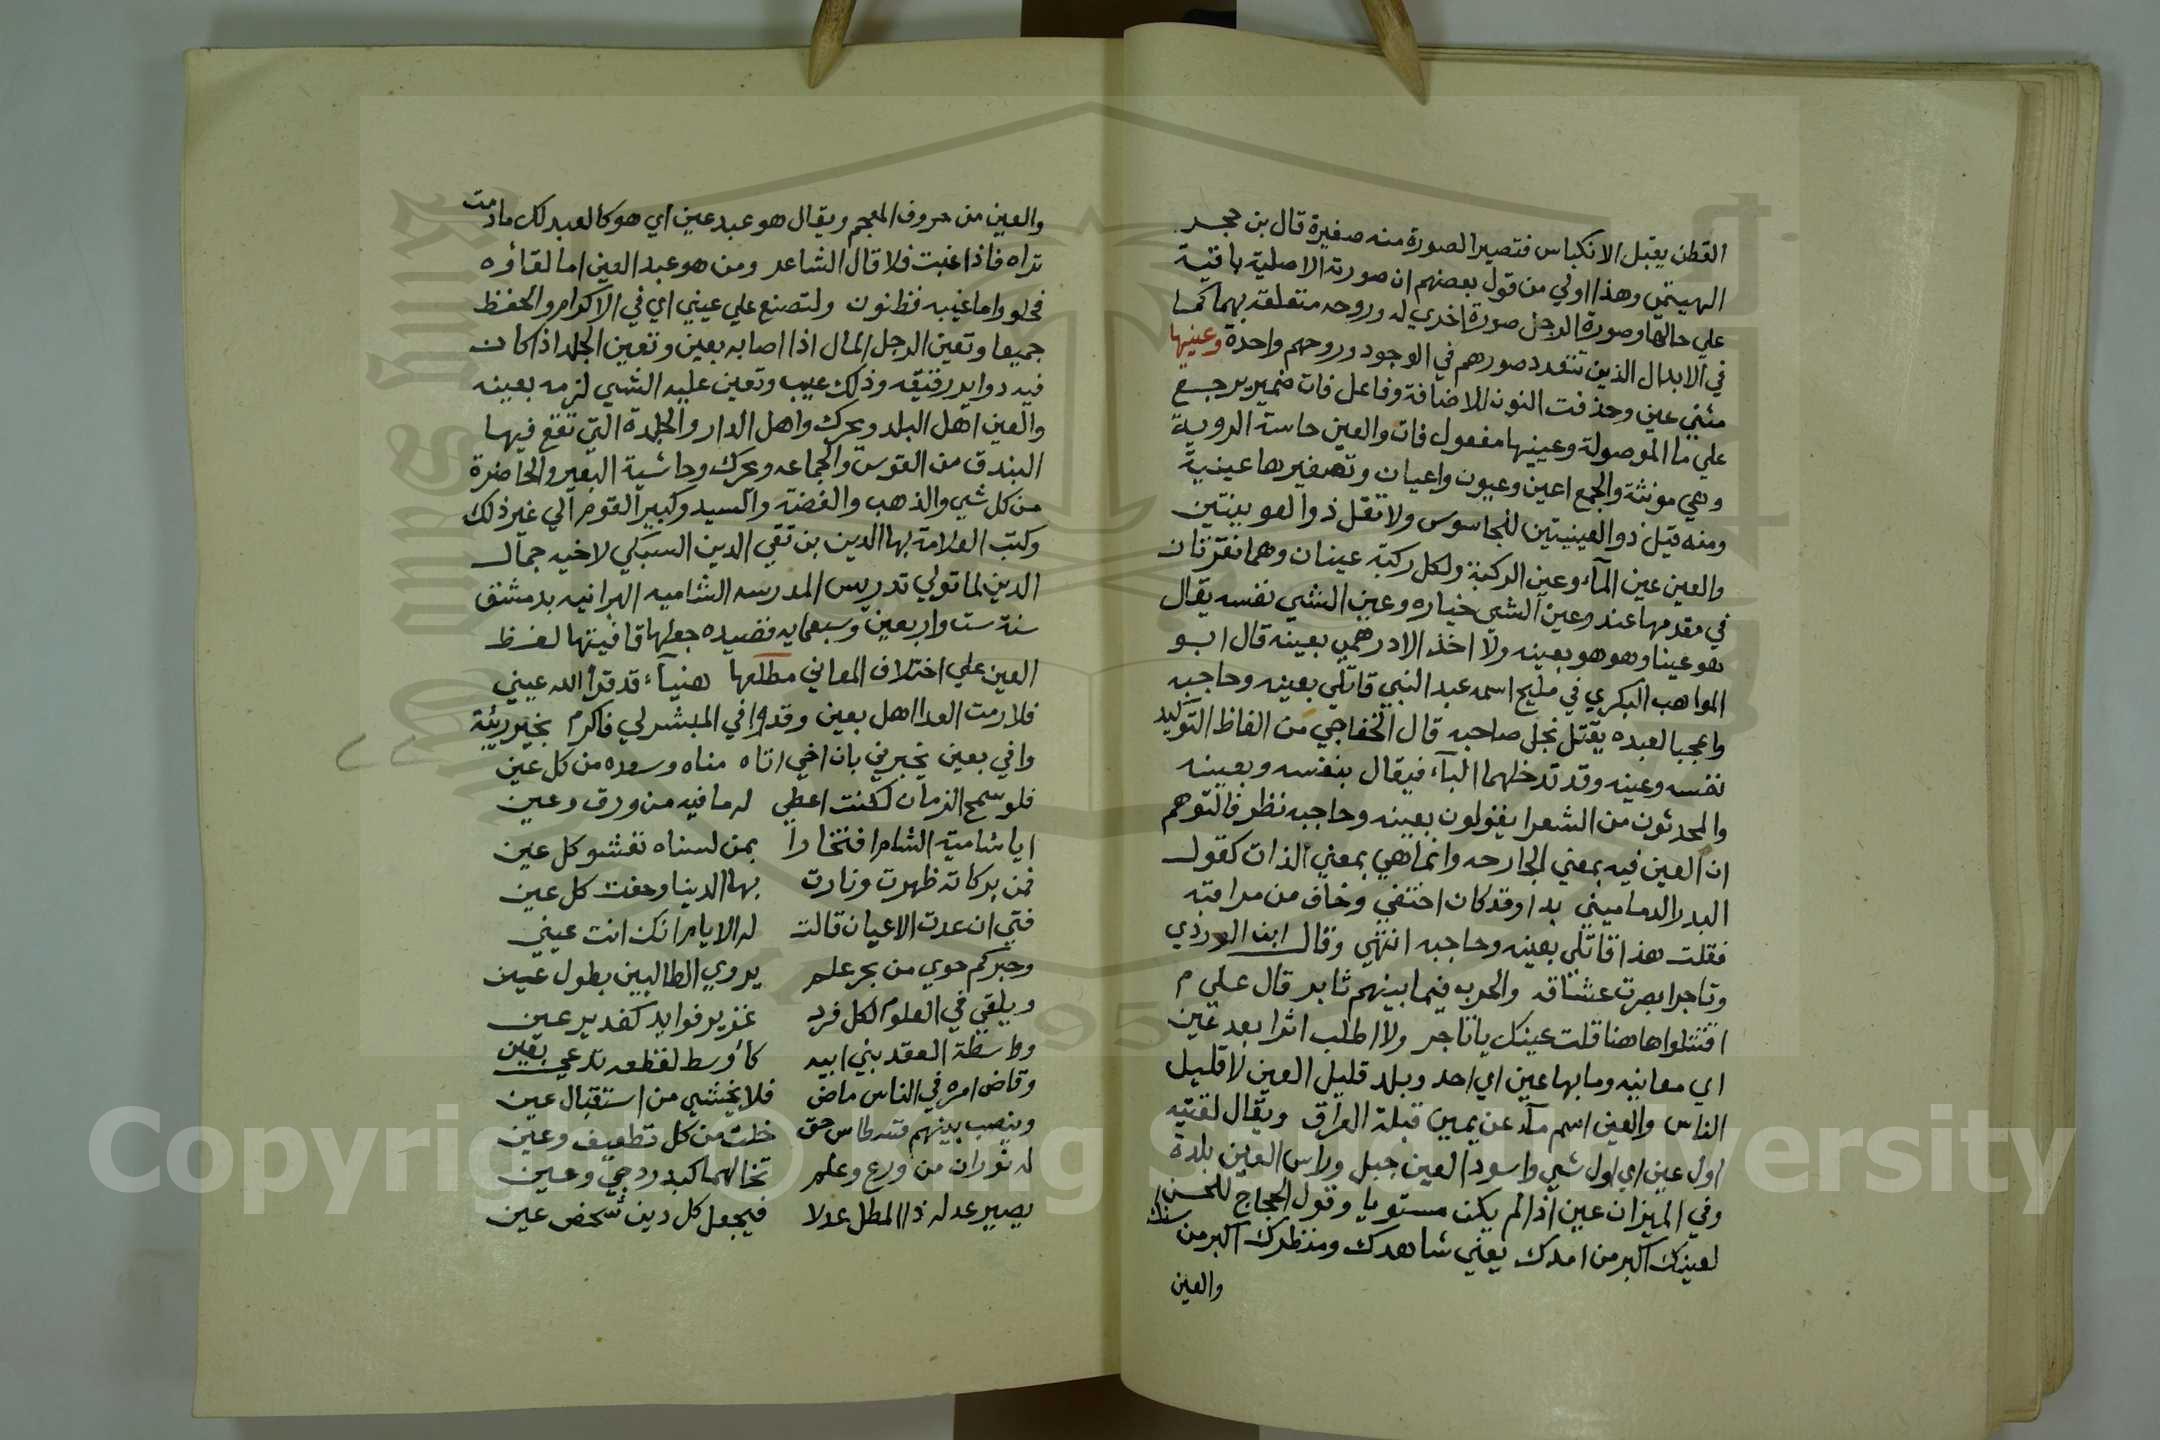 القطن يقبل الانكباس فتصير الصورة منه صغيرة قال بن حجر
الهيتمي وهذا اولي من قول بعضهم ان صورته الاصلية باقية
علي حالها وصورة الرجل صورة اخري له وروحه متعلقة بهما كما
في الابدال الذين تتعدد صورهم في الوجود وروحهم واحدة وعينيها
مثني عين وحذفت النون للاضافة وفاعل فات ضمير يرجع
علي ما الموصولة وعينيها مفعول فات والعين حاسة الروية
وهي مونثة والجمع اعين وعيون واعيان وتصغيرها عيينية
ومنه قيل ذو العيينتين للجاسوس ولا تقل ذو العوينتين
والعين عين المآء وعين الركبة ولكل ركبة عينان وهما نقرتان
في مقدمها عند وعين الشي خياره وعين الشي نفسه يقال
هو عينا وهو هو بعينه ولا اخذ الا درهمي بعينه قال ابو
المواهب البكري في مليح اسمه عبد النبي قاتلي بعينه وحاجبه
واعجبا لعبده يقتل نجل صاحبه قال الخفاجي من الفاظ التوكيد
نفسه وعينه وقد تدخلهما البآء فيقال بنفسه وبعينه
والمحدثون من الشعرا يقولون بعينه وحاجبه نظر فالتوهم
ان العين فيه بمعني الجارحه وانما هي بمعني الذات كقول
البدر الدماميني بدا وقد كان اختفي وخاف من مراقبه
فقلت هذا قاتلي بعينه وحاجبه انتهي وقال ابن الوردي
وتاجر ابصرت عشاقه والحرب فيما بينهم ثاير قال علي م
اقتتلوا هاهنا قلت عينك ياتاجر ولا اطلب اثرا بعد عين
اي معاينه وما بها عين اي احد وبلد قليل العين لا قليل
الناس والعين اسم مآء عن يمين قبلة العراق ويقال لقيته
اول عين اي اول شي واسود العين جبل وراس العين بلدة
وفي الميزان عين اذا لم يكن مستويا وقول الحجاج للحسن
لعينك اكبر من امدك يعني شاهدك ومنظرك اكبر من سنك
والعين
والعين من حروف المعجم ويقال هو عبد عين اي هو كالعبد لك مادمت
تراه فاذا غبت فلا قال الشاعر ومن هو عبد العين اما لقاؤه
فحلو واما غيبه فظنون ولتصنع علي عيني اي في الاكرام والحفظ
جميعا وتعين الرجل المال اذا اصابه بعين وتعين الجلد اذا كان
فيه دواير رقيقه وذلك عيب وتعين عليه الشي لزمه بعينه
والعين اهل البلد ويحرك واهل الدار والجلدة التي تقع فيها
البندق من القوس والجماعه ويحرك وحاشية البعير والحاضرة
من كل شي والذهب والفضة والسيد وكبير القوم الي غير ذلك
وكتب العلامة بها الدين بن تقي الدين السبكي لاخيه جمال
الدين لما تولي تدريس المدرسه الشاميه البرانيه بدمشق
سنة ست واربعين وسبعمايه قصيده جعلها قافيتها لفظ
العين علي اختلاف المعاني مطلعها هنيآء قد قرأ الله عيني
فلا رمت العدا اهل بعين وقد وافي المبشر لي فاكرم بخير ربيئة
وافي بعين يخبرني بان اخي اتاه مناه وسعده من كل عين
فلو سمح الزمان لكنت اعطي له ما فيه من ورق وعين
ايا شامية الشام افتخارا بمن لسناه تعشو كل عين
فمن بركاته ظهرت ونارت بها الدنيا وحفت كل عين
فتي ان عدت الاعيان قالت له الايام انك انت عيني
وحبركم حوي من بحر علم يروي الطالبين بطول عين
ويلقي في العلوم لكل فرد غزير فوايد كغدير عين
وواسطة العقد بني ابيه كأوسط لفظعه تدعي بعين
وقاض امره في الناس ماض فلا يخشي من استقبال عين
وينصب بينهم قسطاس حق خلت من كل تطفيف وعين
له نوران من ورع وعلم تخالهما كبدر دجي وعين
يصير عدله ذا المطل عدلا فيجعل كل دين شخص عين
Copyright © King Saud University